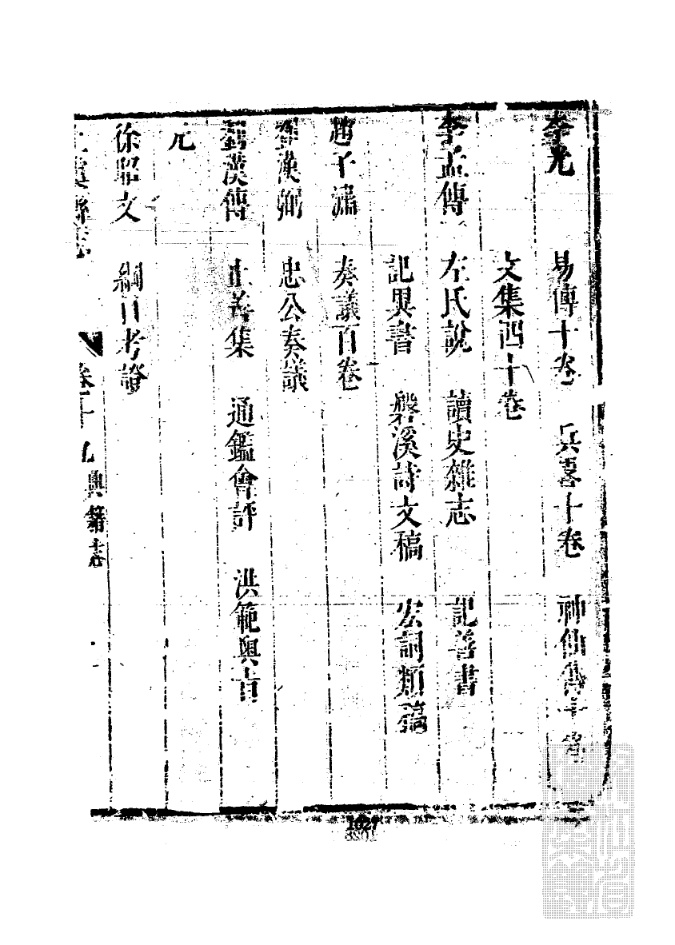 李光 易傳十卷 兵畧十卷 神仙傳十卷
文集四十卷
李孟傳 左氏說 讀史雜志 記善書
記異書 磐溪詩文稿 宏詞類稿
趙子潚 奏議百卷
劉漢弼 忠公奏議
劉漢傳 止善集 通鑑會評 洪範奧旨
元
徐昭文 綱目考證
上虞縣志 卷三十九 典籍志